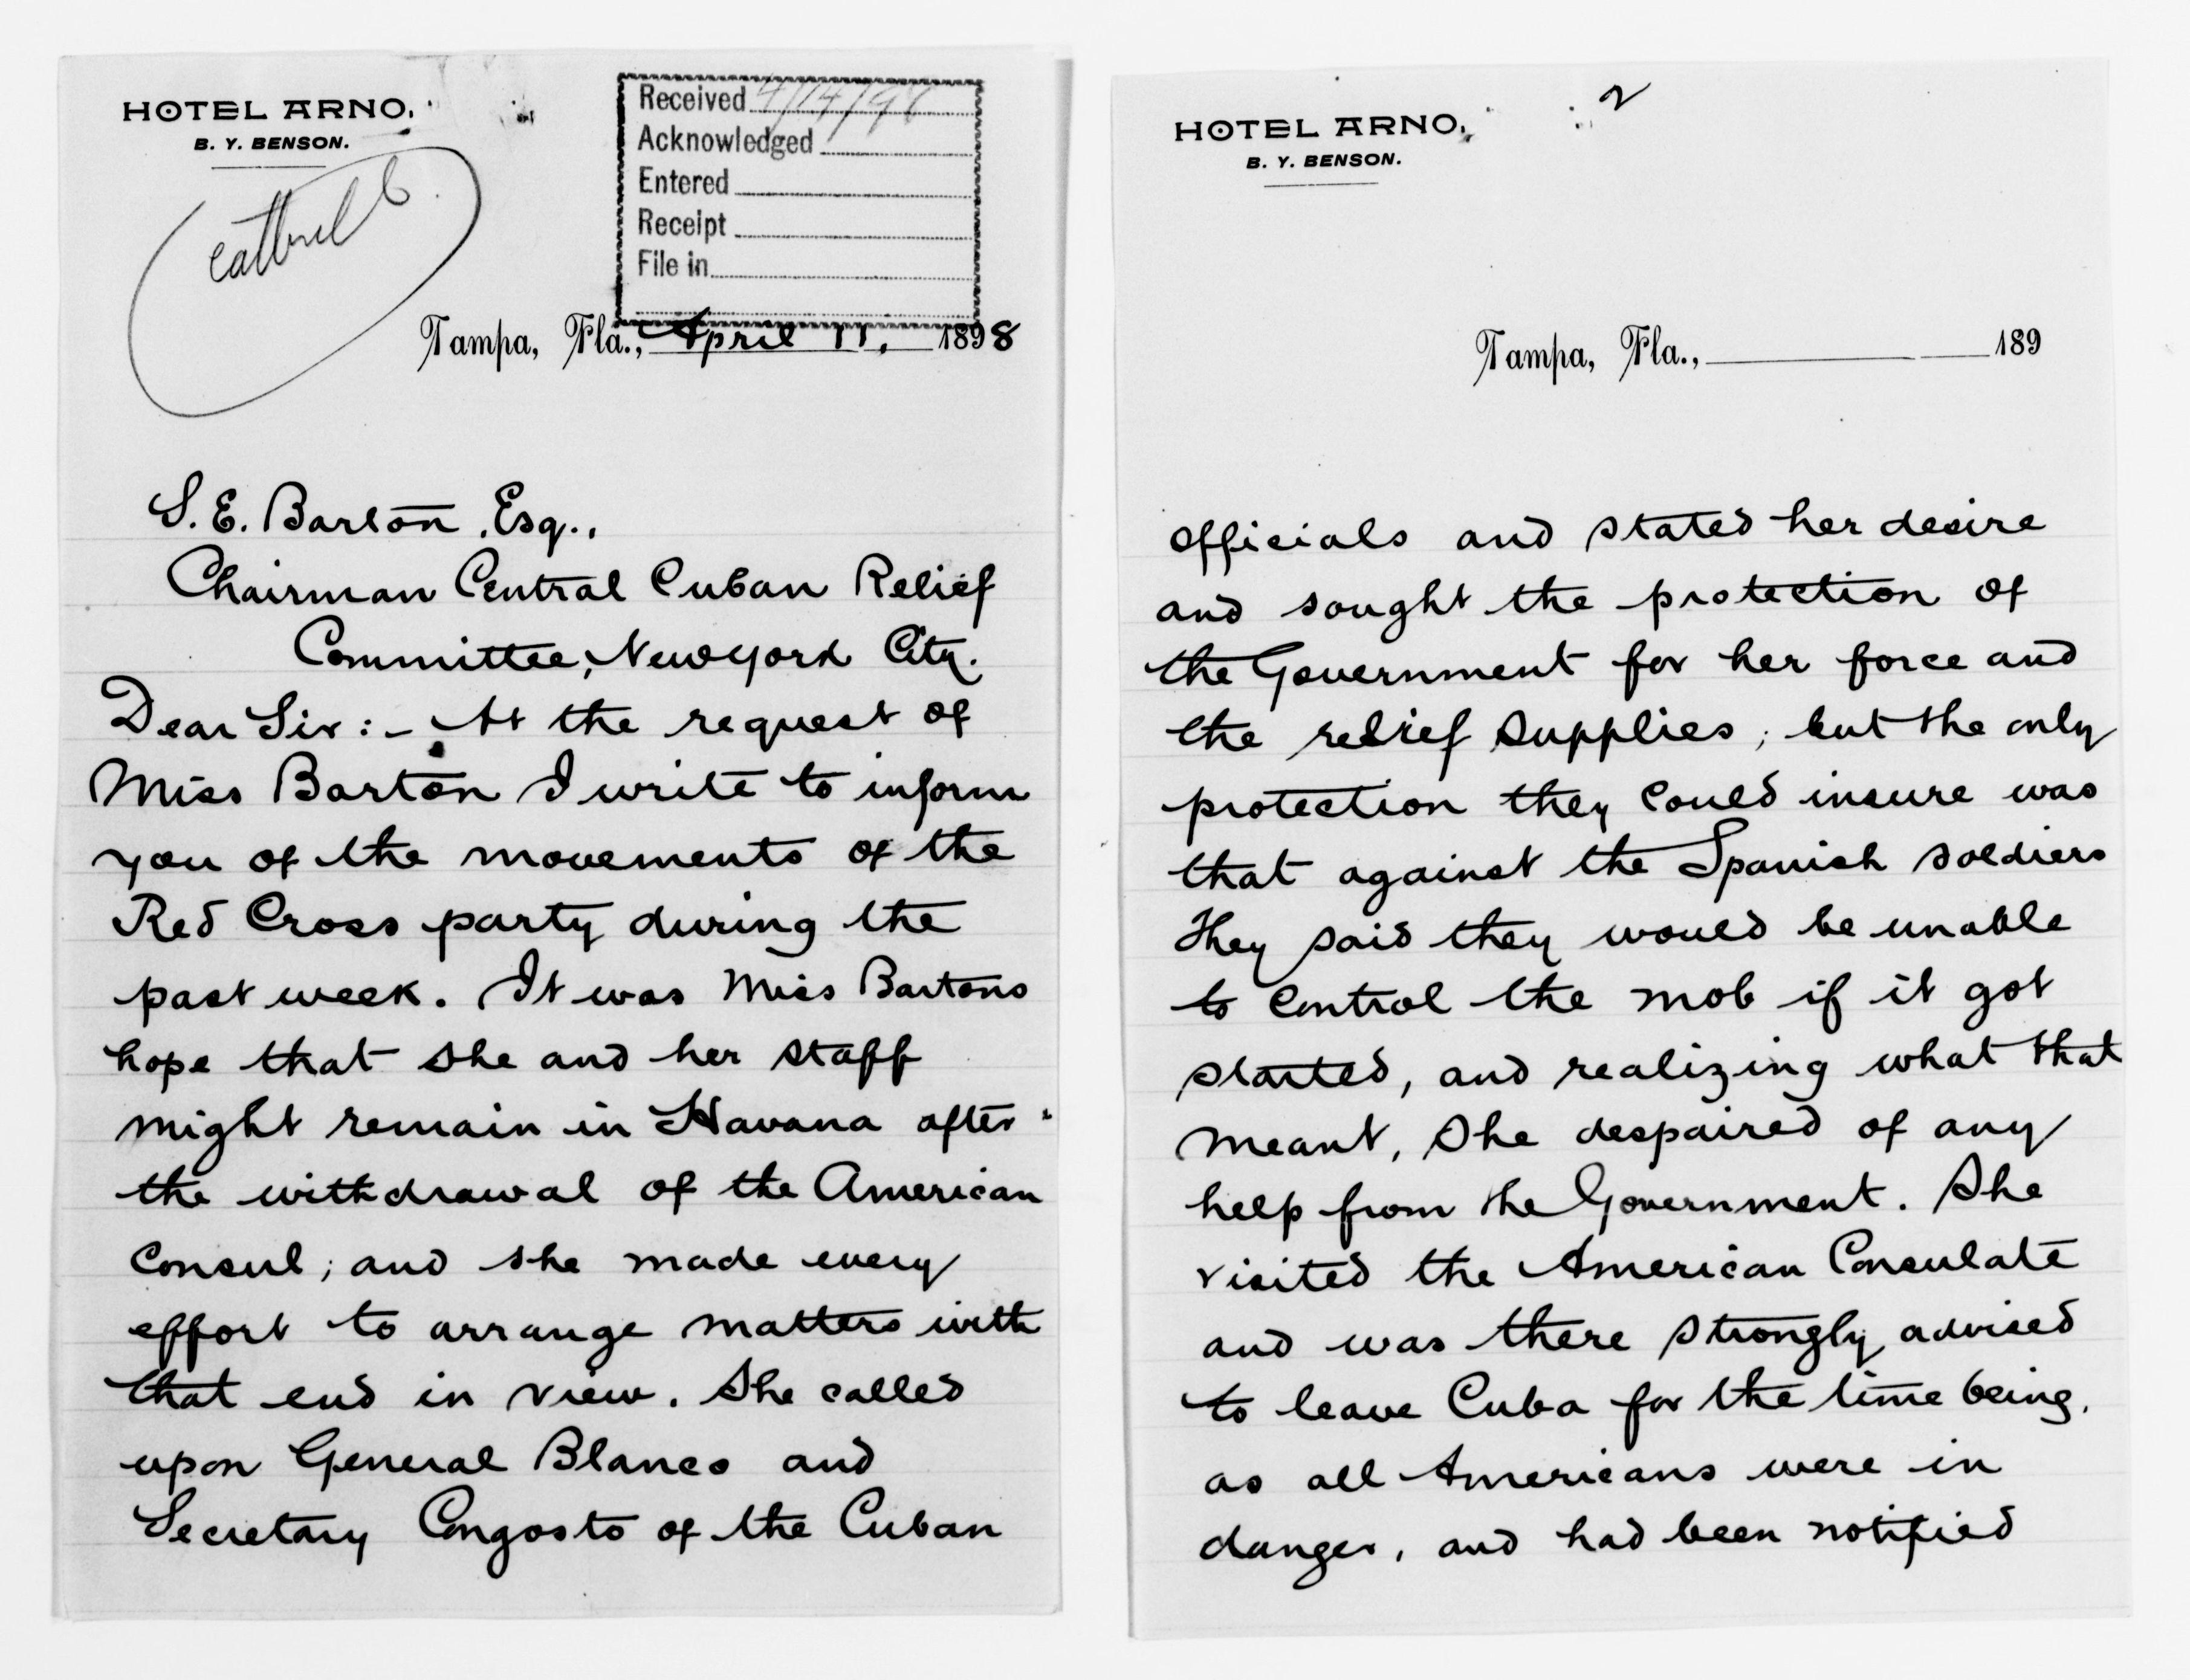 HOTEL ARNO.
B. Y. BENSON.
Received 4/14/98
Acknowledged
Entered
Receipt
File in
Tampa, Fla., April 11, 1898
S. E. Barton, Esq.,
Chairman Central Cuban Relief
Committee, New York City.
Dear Sir:- At the request of
Miss Barton I write to inform
you of the movements of the
Red Cross party during the
past week. It was Miss Bartons
hope that she and her staff
might remain in Havana after
the withdrawal of the American
Consul; and she made every
effort to arrange matters with
that end in view. She called
upon General Blanco and
Secretary Congosto of the Cuban
2
HOTEL ARNO.
B. Y. BENSON.
Tampa, Fla., 189
officials and stated her desire
and sought the protection of
the Government for her force and
the relief supplies; but the only
protection they could insure was
that against the Spanish soldiers
They said they would be unable
to control the mob if it got
started, and realizing what that
meant, she despaired of any
help from the Government. She
visited the American Consulate
and was there strongly advised
to leave Cuba for the time being,
as all Americans were in
danger, and had been notified